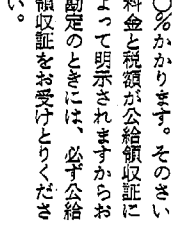 ○％かかります。そのさい
料金と税額が公給領収証に
よって明示されますからお
勘定のときには、必ず公給
領収証をお受けとりくださ
い。